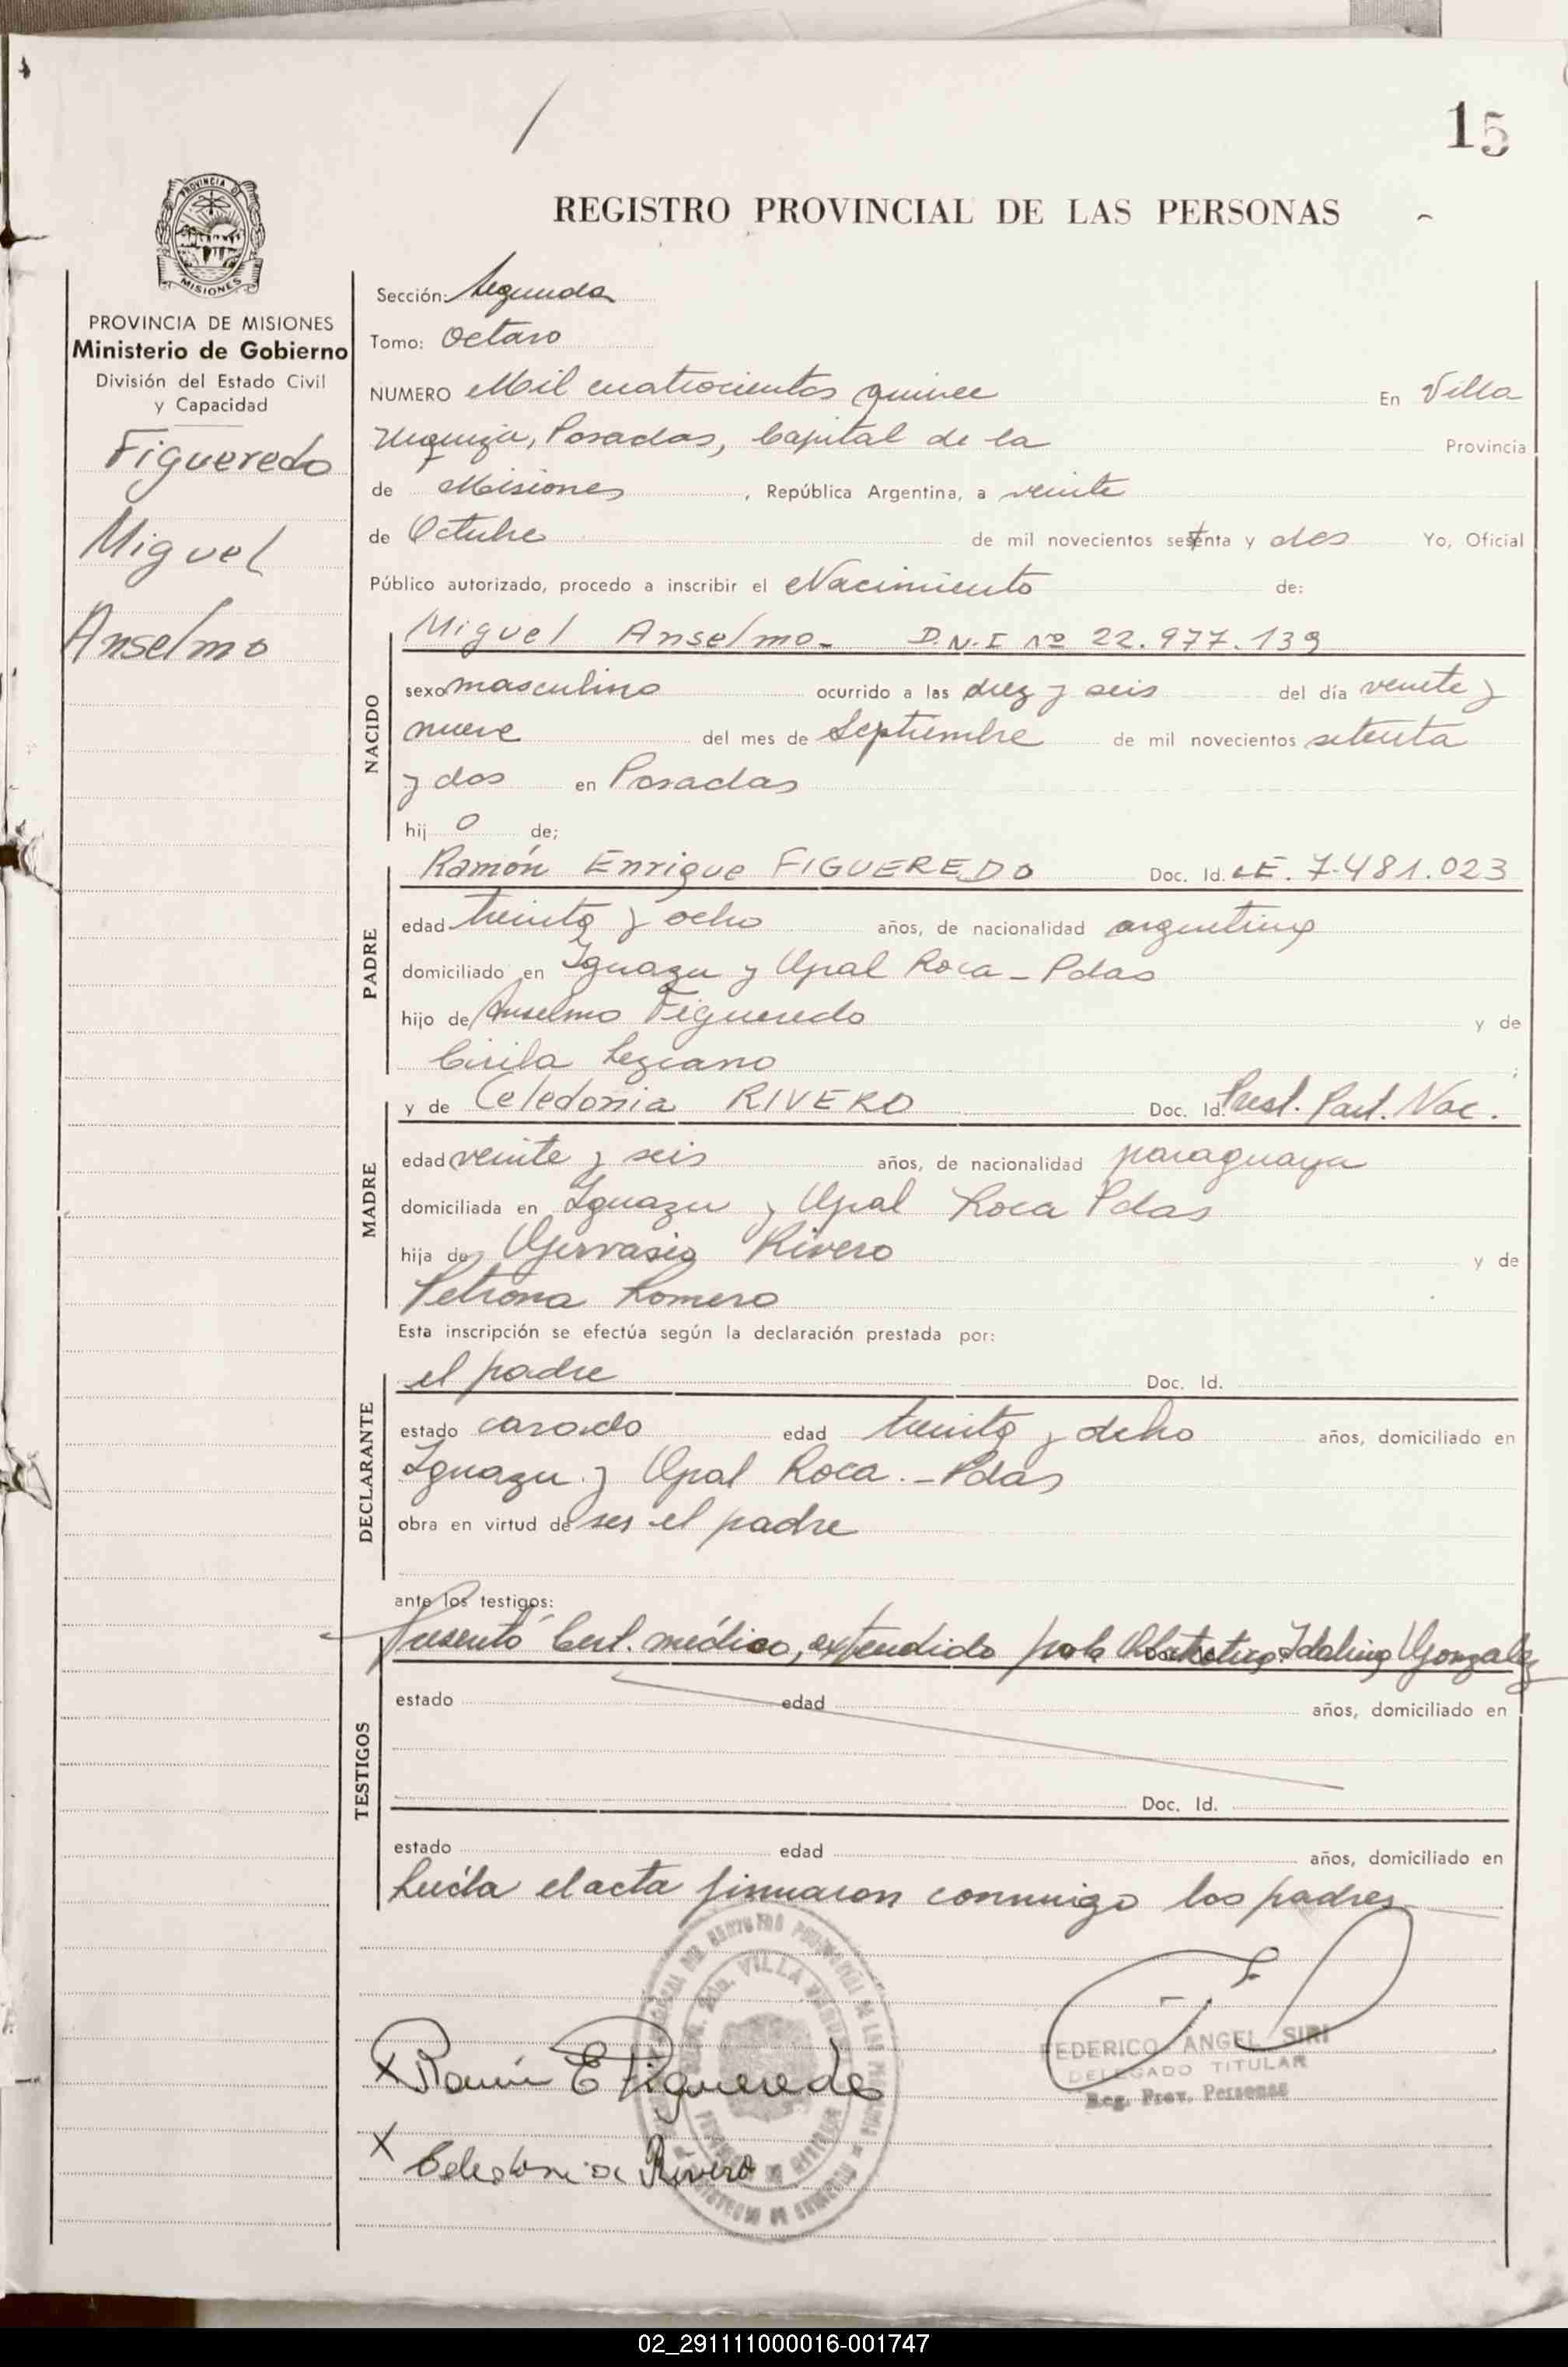 15
REGISTRO PROVINCIAL DE LAS PERSONAS
PROVINCIA DE MISIONES
Ministerio de Gobierno
División del Estado Civil
y Capacidad
Figueredo
Miguel
Anselmo
Sección: Segunda
Tomo: Octavo
NUMERO Mil cuatrocientos quince En Villa
Urquiza, Posadas, Capital de la Provincia
de Misiones, República Argentina, a veinte
de Octubre de mil novecientos setenta y dos Yo, Oficial
Público autorizado, procedo a inscribir el Nacimiento de:
NACIDO
Miguel Anselmo- D.N.I Nº 22.977.139
sexo masculino ocurrido a las diez y seis del día veinte y
nueve del mes de Septiembre de mil novecientos setenta
y dos en Posadas
hij o de;
PADRE
Ramón Enrique FIGUEREDO Doc. Id. LE. 7.481.023
edad treinta y ocho años, de nacionalidad argentina
domiciliado en Iguazu y Gral Roca - Pdas
hijo de Anselmo Figueredo y de
Cirila Lezcano ;
MADRE
y de Celedonia RIVERO Doc. Id. Prest. Part. Nac.
edad veinte y seis años, de nacionalidad paraguaya
domiciliada en Iguazu y Gral Roca Pdas
hija de Gervasio Rivero y de
Petrona Romero
Esta inscripción se efectúa según la declaración prestada por:
DECLARANTE
el padre Doc. Id.
estado casado edad treinta y ocho años, domiciliado en
Iguazu y Gral Roca.-Pdas
obra en virtud de ser el padre
ante los testigos:
TESTIGOS
Presentó Cert. médico, extendido por la Obstetrica Idalina Gonzalez
estado edad años, domiciliado en
Doc. Id.
estado edad años, domiciliado en
Leída el acta firmaron conmigo los padres
FEDERICO ANGEL SIRI
DELEGADO TITULAR
Reg. Prov. Personas
X Ramón E Figueredo
X Celedonia Rivero
02_291111000016-001747